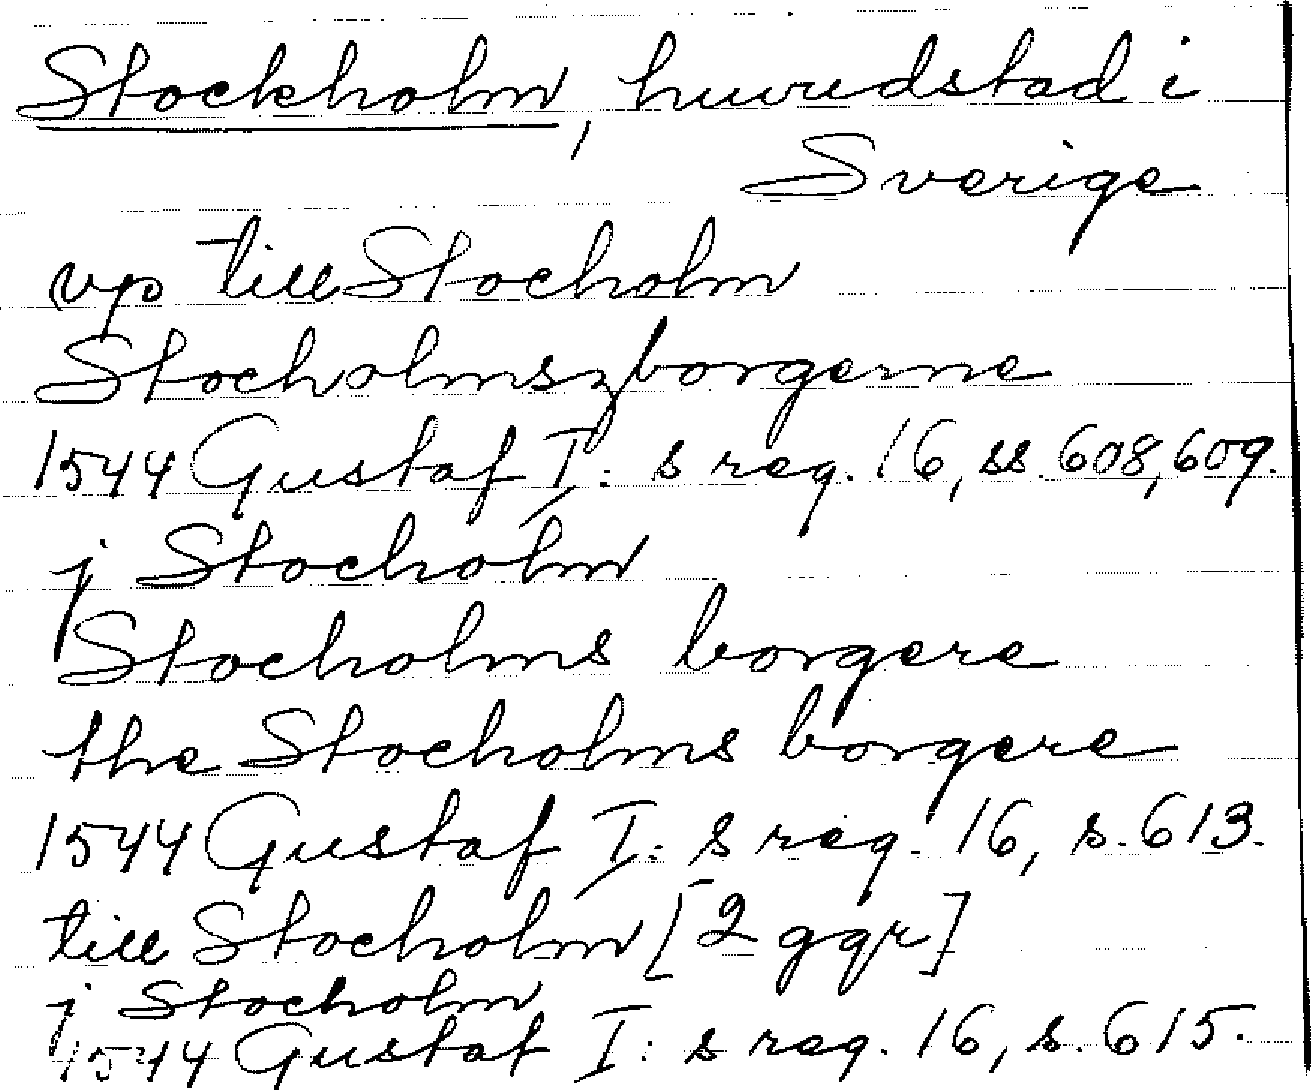 Stockholm, huvudstad i
Sverige
vp till Stocholm
Stocholmszborgerne
1544 Gustaf I: s reg. 16, ss. 608, 609.
j Stocholm
Stocholms borgere
the Stocholms borgere
1544 Gustaf I: s reg. 16, s. 613.
till Stocholm [2 ggr]
j Stocholm
1544 Gustaf I: s reg. 16, s. 615.